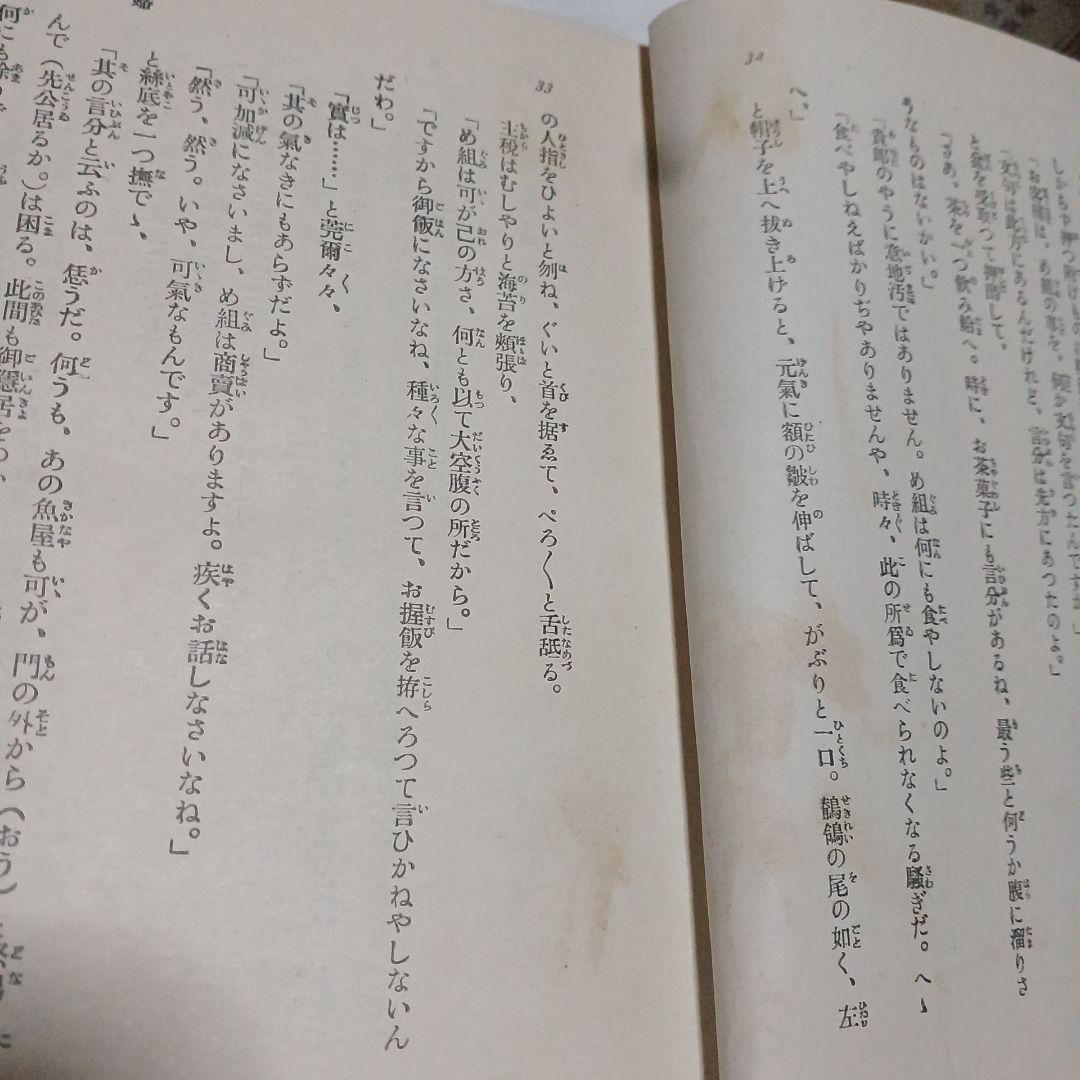 しからや押つ附けいの
「お客様は、め組の事を、何か文句を言つたんですか。」
「文句は此方にあるんだけれど、言分は先方にあつたのよ。」
と盆を受取つて押出して、
「さあ、茶を一つ飲み給へ。時に、お茶菓子にも言分があるね、最う些と何うか腹に溜りさ
うなものはないかい。」
「貴郎のやうに意地汚ではありません。め組は何にも食やしないのよ。」
「食べやしねえばかりぢやありませんや、時々、此の所爲で食べられなくなる騒ぎだ。へゝ
へ、」
と帽子を上へ抜き上げると、元氣に額の皺を伸ばして、がぶりと一口。鶺鴒の尾の如く、左
34
33
の人指をひよいと刎ね、ぐいと首を据ゑて、ぺろ〱と舌舐る。
主税はむしやりと海苔を頬張り、
「め組は可が己の方さ、何とも以て大空腹の所だから。」
「ですから御飯になさいなね、種々な事を言つて、お握飯を拵へろつて言ひかねやしないん
だわ。」
「實は……」と莞爾々々、
「其の氣なきにもあらずだよ。」
「可加減になさいまし、め組は商賣がありますよ。疾くお話しなさいなね。」
「然う、然う。いや、可氣なもんです。」
と絲底を一つ撫でゝ、
「其の言分と云ふのは、恁うだ。何うも、あの魚屋も可が、門の外から(おう)と
んで(先公居るか。)は困る。此間も御隱居を
何にも